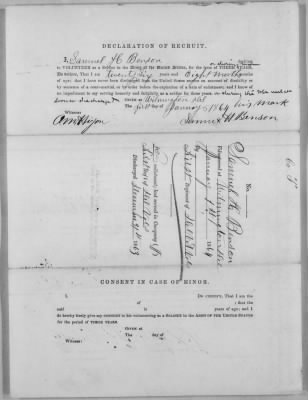 DECLARATION OF RECRUIT.
I, Samuel H Benson desiring
to VOLUNTEER as a Soldier in the Army of the United States, for the term of THREE YEARS,
Do declare, That I am twenty six years and Eight months
of age; that I have never been discharged from the United States service on account of disability or
by sentence of a court-martial, or by order before the expiration of a term of enlistment; and I know of
no impediment to my serving honestly and faithfully as a soldier for three years.
GIVEN at Wilmington Del
The first day of January 1864
his mark
Witness:
Samuel H Benson
No.
Samuel H Benson
Wilmington Del
January 1st 1864
First Regiment of Del Vols
enlistment; last served in Company
1st Reg't of Del Vols
Discharged December 31st 1863
CONSENT IN CASE OF MINOR.
I, DO CERTIFY, That I am the
of ; that the
said is years of age; and I
do hereby freely give my CONSENT to his volunteering as a SOLDIER in the ARMY OF THE UNITED STATES
for the period of THREE YEARS.
GIVEN at
The day of
Witness: